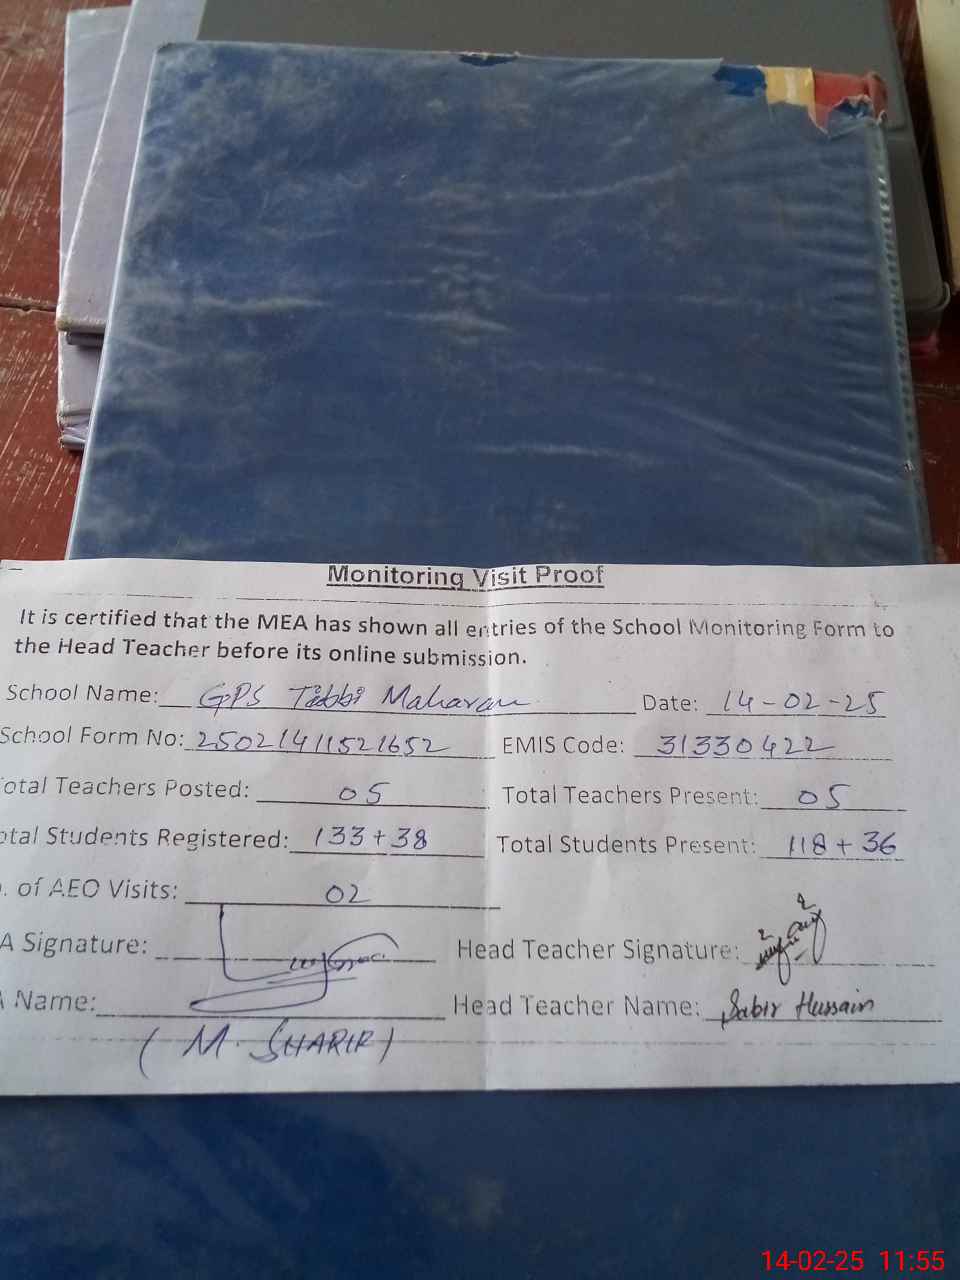 Monitoring Visit Proof
It is certified that the MEA has shown all entries of the School Monitoring Form to
the Head Teacher before its online submission.
School Name: GPS Tibbi Maharan Date: 14-02-25
School Form No: 25021411521652 EMIS Code: 31330422
otal Teachers Posted: 05 Total Teachers Present: 05
otal Students Registered: 133+38 Total Students Present: 118+36
. of AEO Visits: 02
A Signature: Head Teacher Signature:
Name: Head Teacher Name: Sabir Hussain
(M. SHARIF)
14-02-25 11:55